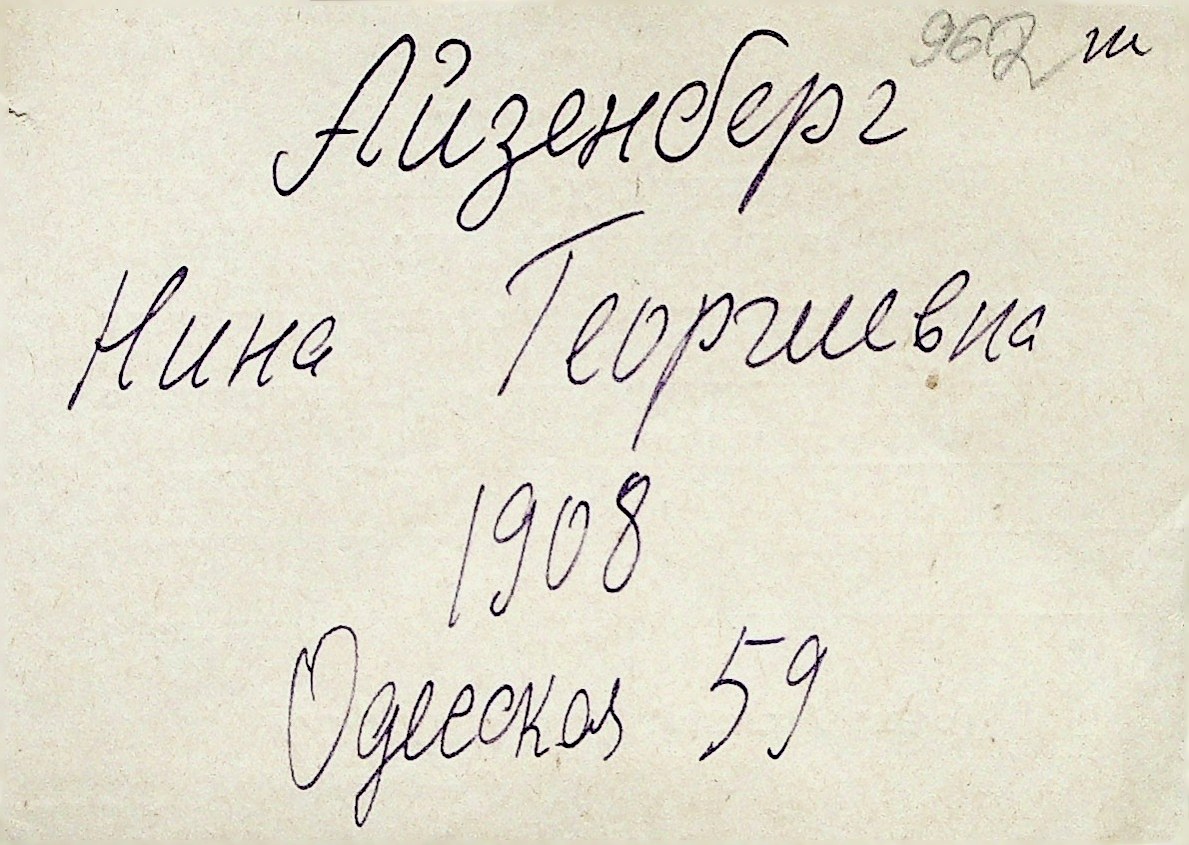 962 т
Айзенберг
Нина Георгиевна
1908
Одесская 59